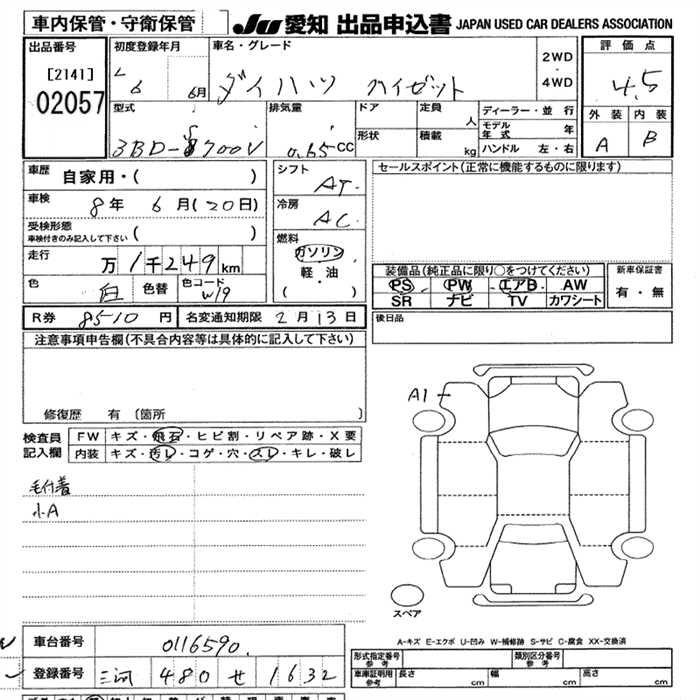 車内保管・守衛保管
JU 愛知 出品申込書 JAPAN USED CAR DEALERS ASSOCIATION
出品番号
[2141]
02057
初度登録年月
6 6月
車名・グレード
ダイハツ ハイゼット
2WD
・
4WD
評価点
4.5
外装 内装
A B
型式
3BD-S700V
排気量
0.65CC
ドア
形状
定員 人
積載 kg
ディーラー・並行
モデル年式 年
ハンドル 左・右
車歴
自家用・( )
車検
8年 6月(20日)
受検形態
車検付きのみ記入して下さい ( )
走行
万1千249km
色
白 色替 色コード W19
シフト
AT
冷房
AC
燃料
ガソリン
軽・油
( )
セールスポイント(正常に機能するものに限ります)
装備品(純正品に限り○をつけてください)
PS PW エアB AW
SR ナビ TV カワシート
新車保証書
有・無
R券 8510円 名変通知期限 2月13日
後日品
注意事項申告欄(不具合内容等は具体的に記入して下さい)
修復歴 有 〔箇所 〕
検査員
記入欄
FW キズ・飛石・ヒビ割・リペア跡・X要
内装 キズ・汚レ・コゲ・穴・スレ・キレ・破レ
毛付着
小A
A1
スペア
A-キズ E-エクボ U-凹み W-補修跡 S-サビ C-腐食 XX-交換済
車台番号 0116590
登録番号 三河 480 せ 1632
形式指定番号 参考
類別区分番号 参考
車庫証明用 参考 長さ cm 幅 cm 高さ cm